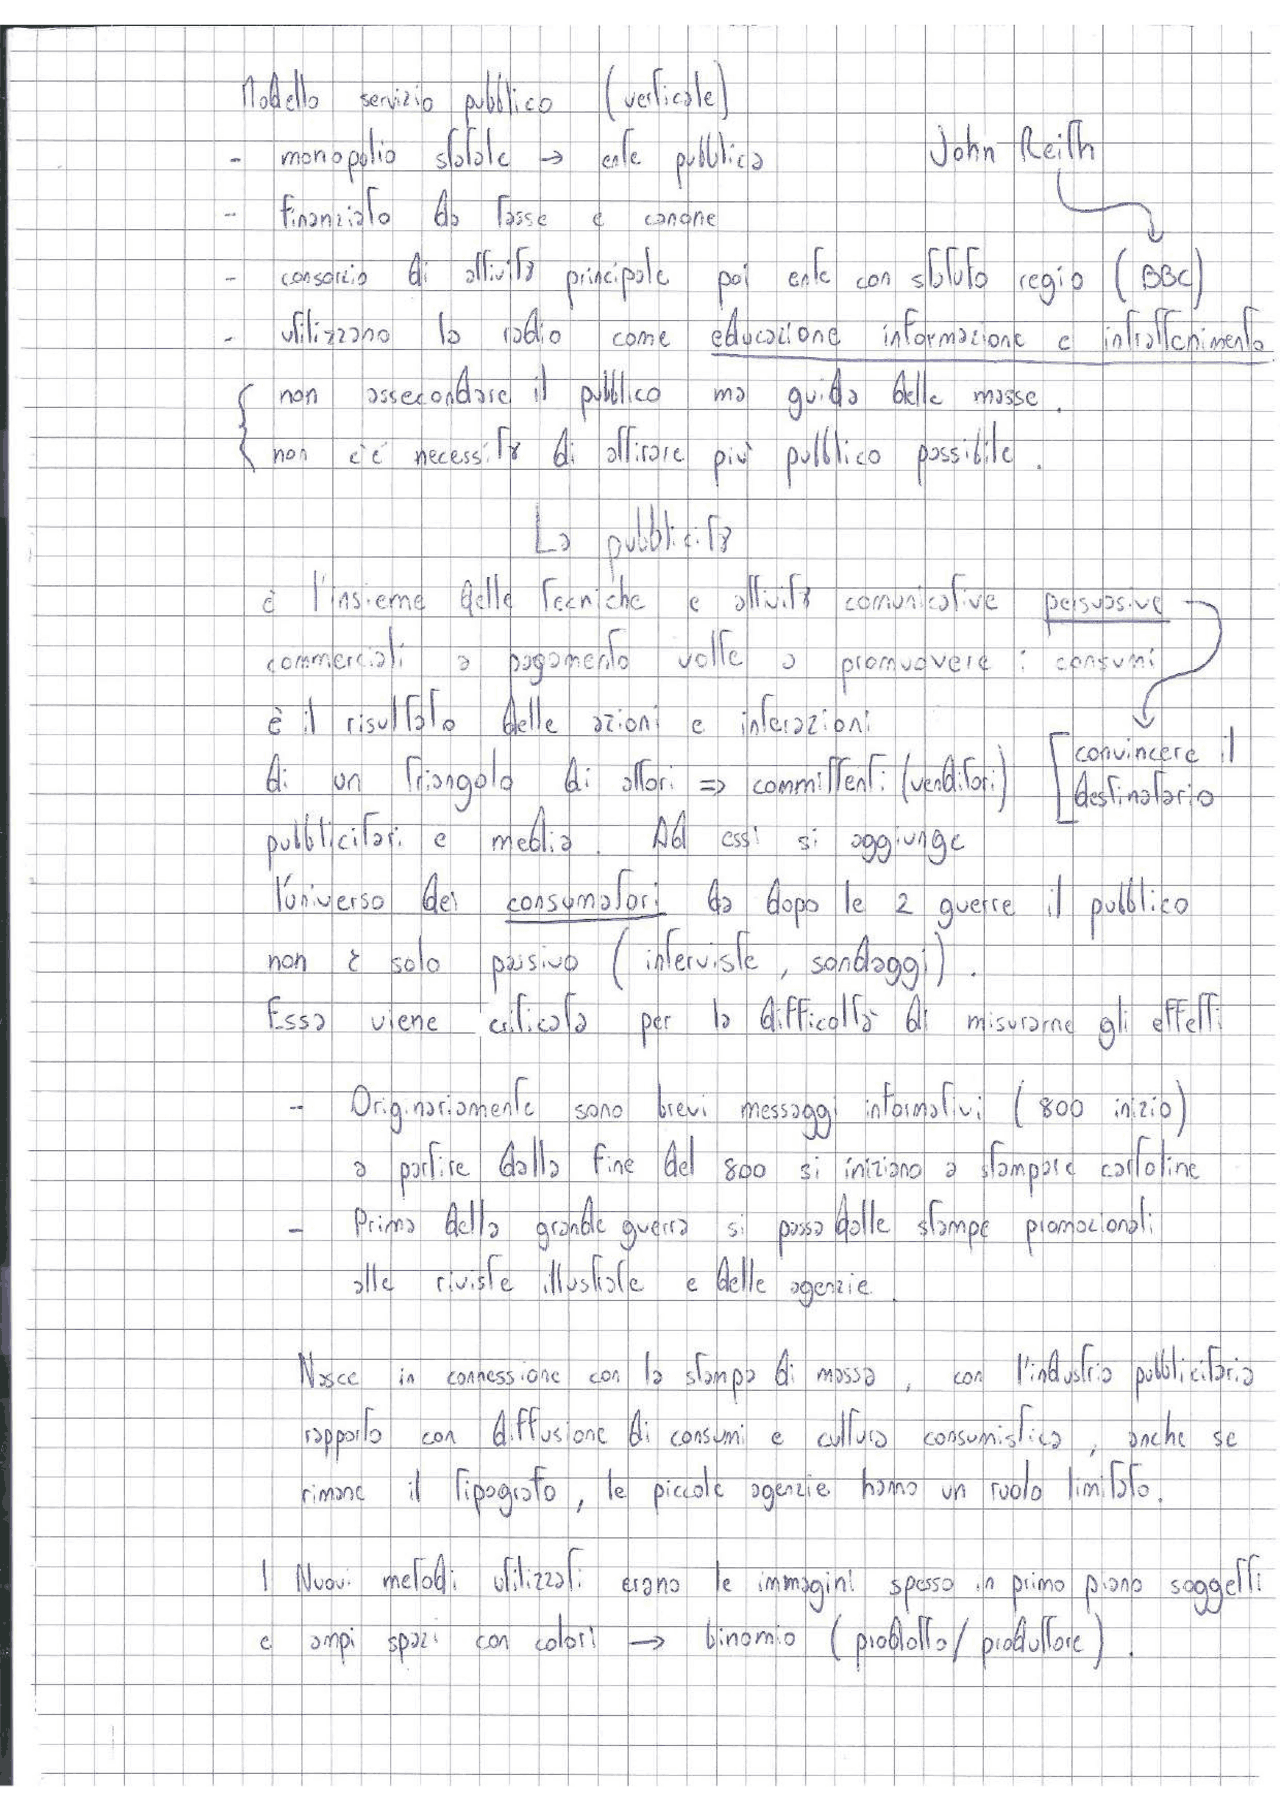 Modello servizio pubblico (verticale)
- monopolio statale → ente pubblico
John Reith
- finanziato da tasse e canone
- consorzio di attività principale poi ente con statuto regio (BBC)
- utilizzano la radio come educazione informazione e intrattenimento
{ non assecondare il pubblico ma guida delle masse.
non c'è necessità di attirare più pubblico possibile.
La pubblicità
è l'insieme delle tecniche e attività comunicative persuasive
commerciali a pagamento volte a promuovere i consumi
è il risultato delle azioni e interazioni
[convincere il
di un triangolo di attori ⇒ committenti (venditori)
destinatario
pubblicitari e media. Ad essi si aggiunge
l'universo dei consumatori da dopo le 2 guerre il pubblico
non è solo passivo (interviste, sondaggi).
Essa viene criticata per la difficoltà di misurarne gli effetti
- Originariamente sono brevi messaggi informativi (800 inizio)
a partire dalla fine del 800 si iniziano a stampare cartoline
- Prima della grande guerra si passa dalle stampe promozionali
alle riviste illustrate e delle agenzie.
Nasce in connessione con la stampa di massa, con l'industria pubblicitaria
rapporto con diffusione di consumi e cultura consumistica, anche se
rimane il tipografo, le piccole agenzie hanno un ruolo limitato.
I Nuovi metodi utilizzati erano le immagini spesso in primo piano soggetti
e ampi spazi con colori → binomio (prodotto/produttore).